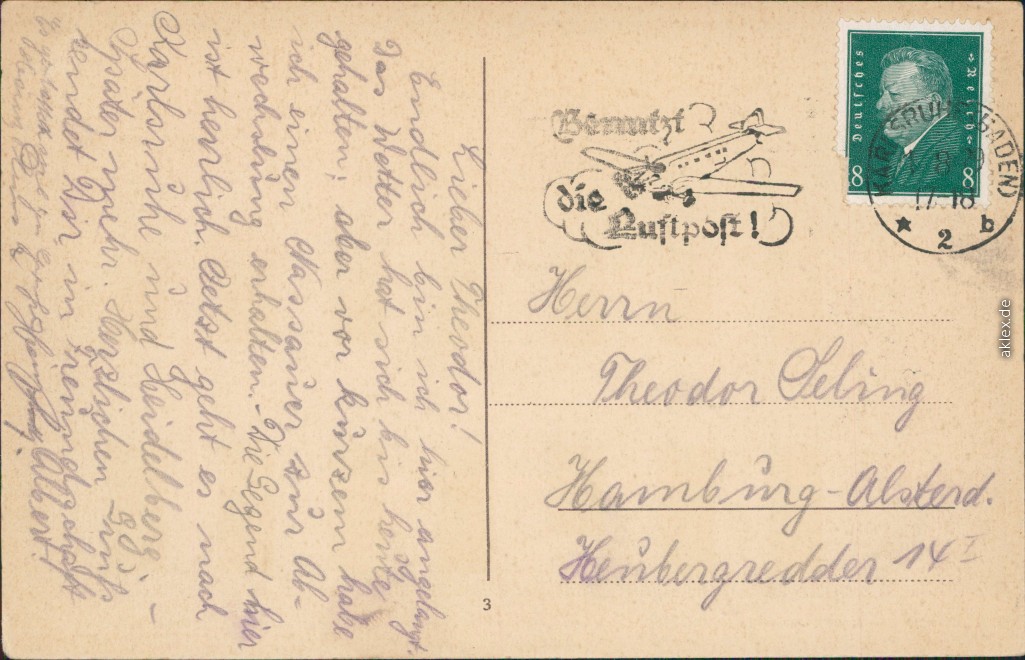 Lieber Theodor!
Endlich bin ich hier angelangt.
Das Wetter hat sich bis heute
gehalten; aber vor kurzem habe
ich einen Nassauer zur Ab-
wechslung erhalten. Die Gegend hier
ist herrlich. Jetzt geht es nach
Karlsruhe und Heidelberg.
Später mehr. Herzlichen Gruß
sendet Dir in Freundschaft
Albert.
Benutzt
die
Luftpost!
Deutsches Reich
8 8
KARLSRUHE (BADEN)
17-18
★ 2 b
Herrn
Theodor Seling
Hamburg-Alsterd.
Heubergredder 14 I
3
aklex.de